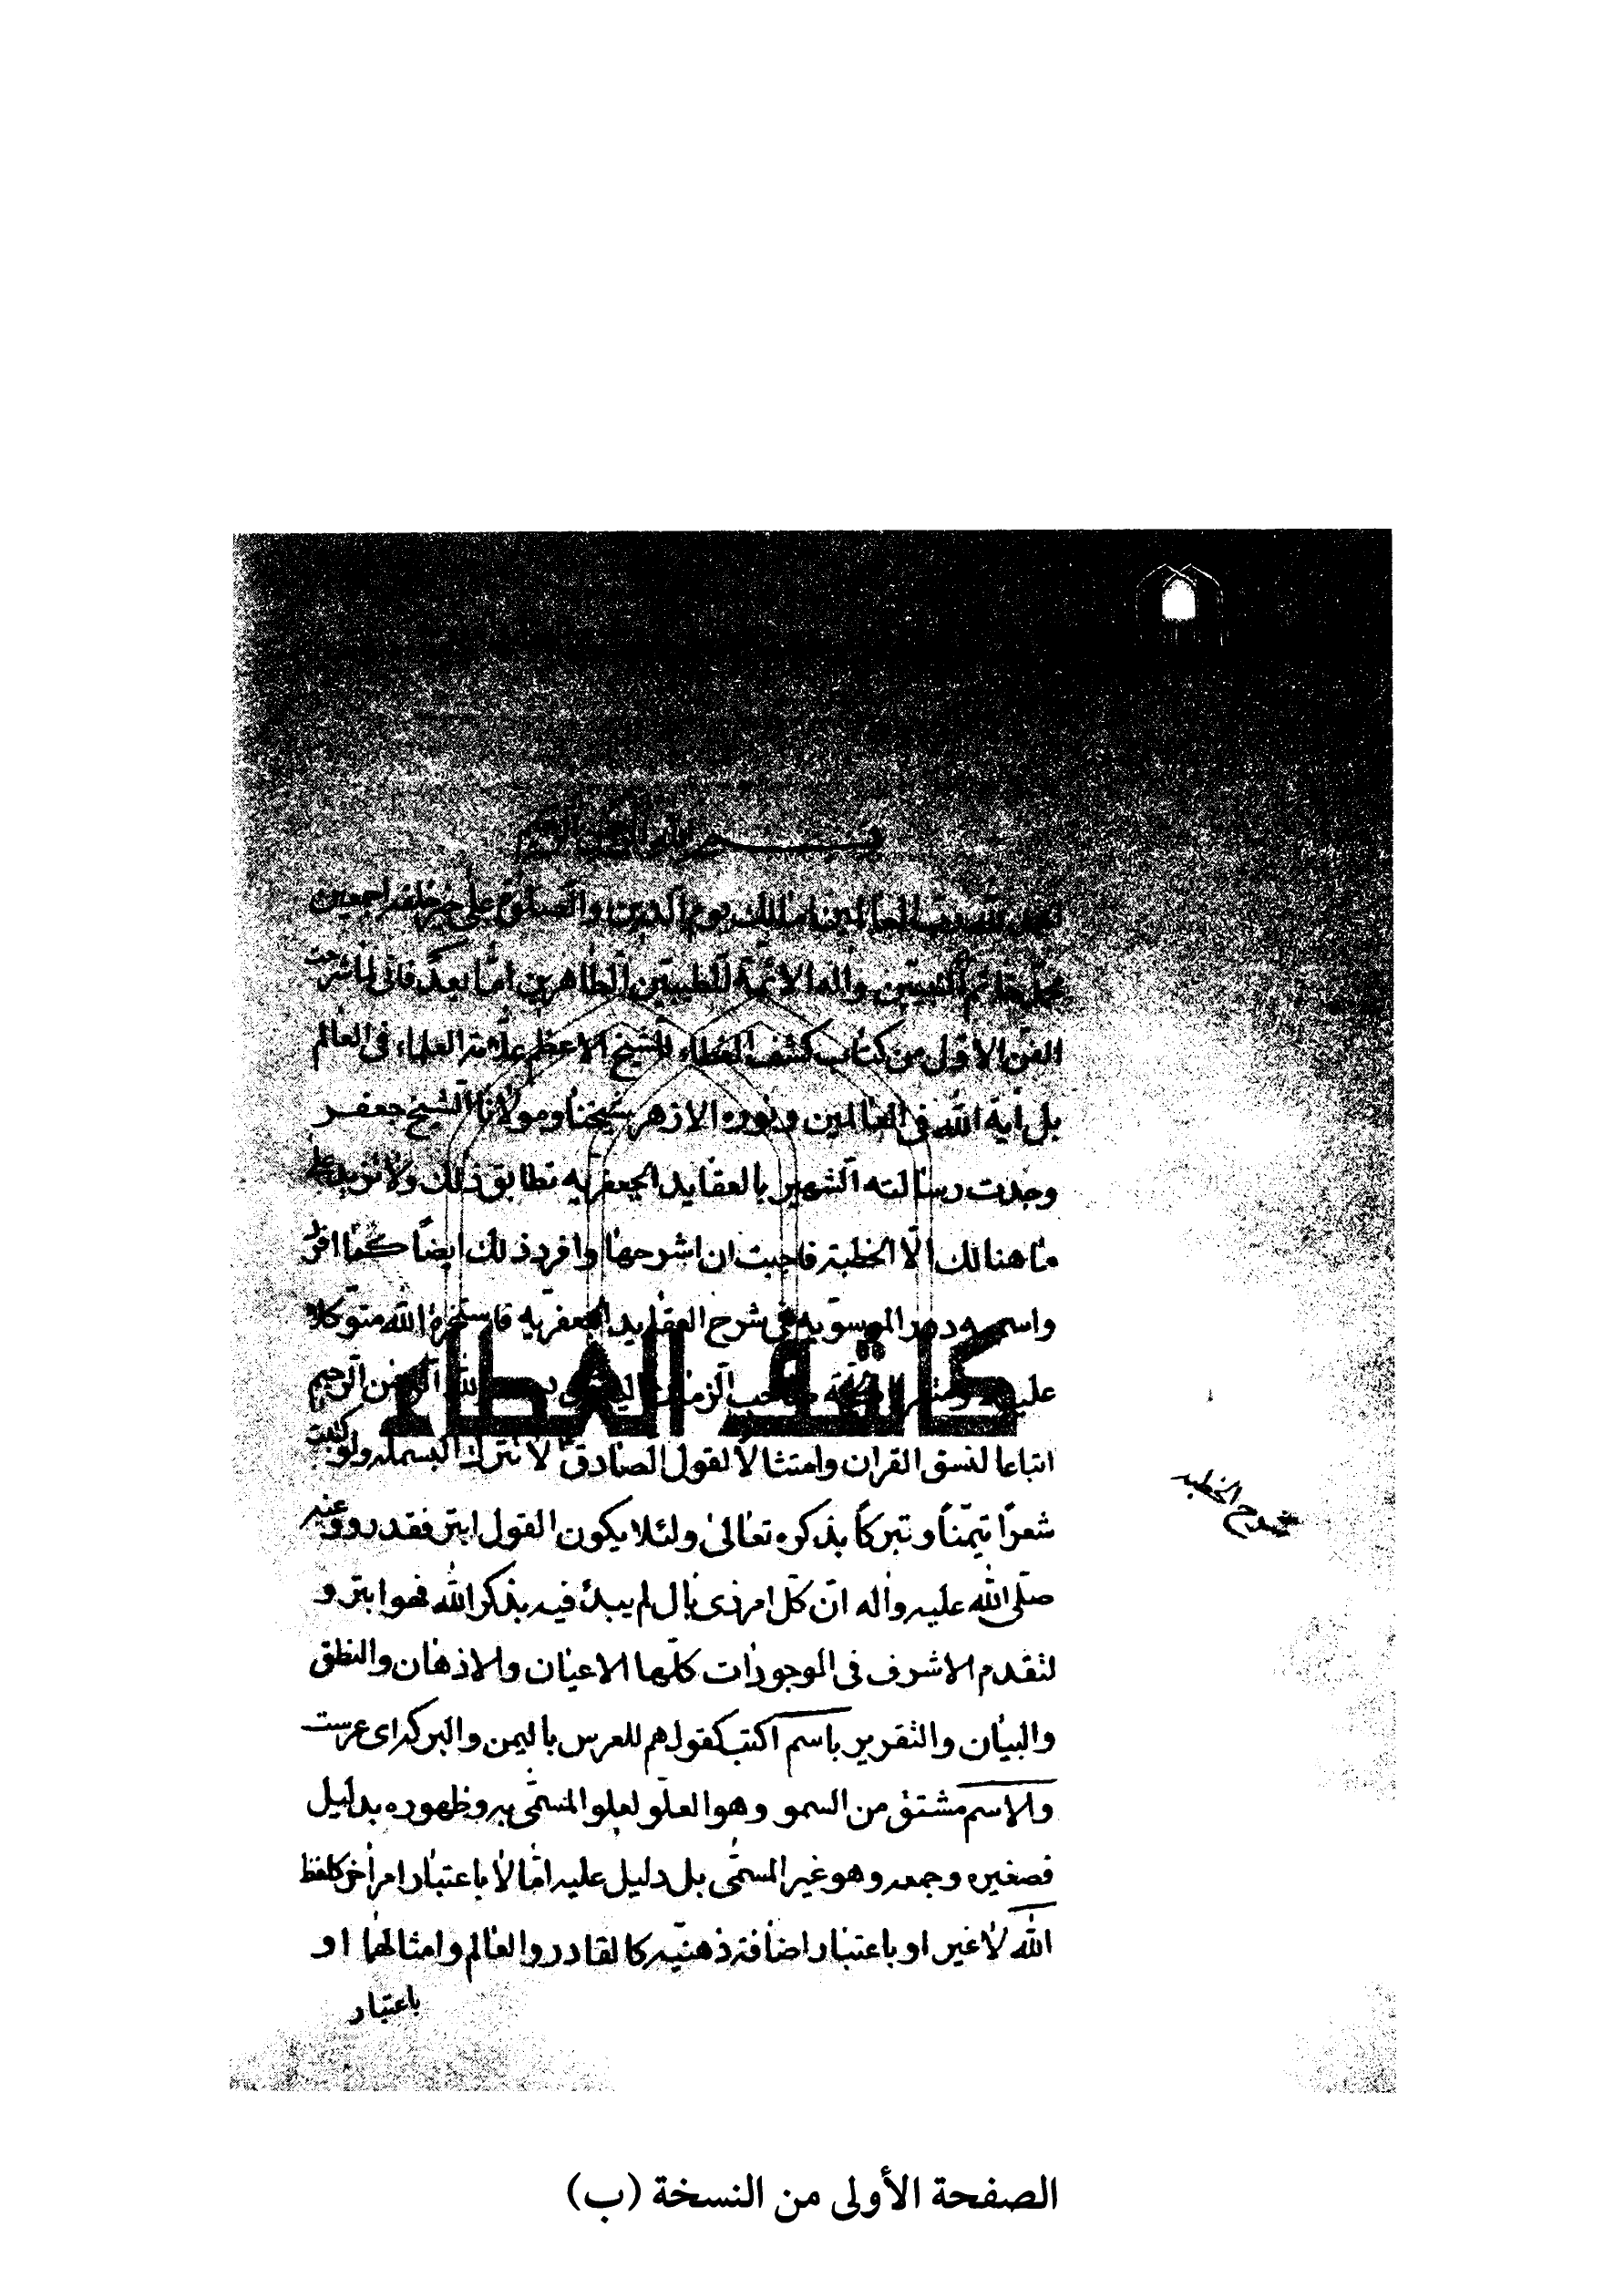 بسم الله الرحمن الرحيم
الحمد لله رب العالمين مالك يوم الدين والصلوة على خير خلقه اجمعين
محمد خاتم النبيين واله الائمة الطيبين الطاهرين امّا بعد فانى لما شرحت
الفن الاول من كتاب كشف الغطاء للشيخ الاعظم علامة العلماء فى العالم
بل آية الله فى العالمين ونوره الازهر شيخنا ومولانا الشيخ جعفر
وجدت رسالته الشهير بالعقايد الجعفريه تطابق ذلك ولا تزيد على
ما هنالك الّا الخطبة فاحببت ان اشرحها وافرد ذلك ايضاً كما افرد
واسميه درر الموسويه فى شرح العقايد الجعفريه فاستخرة الله متوكلا
عليه الرحمن الرحيم
كاشف الغطاء
اتباعا لنسق القران وامتثالا لقول الصادق ع لا تترك البسمله ولو كتبت
شعراً تيمّناً وتبركاً بذكره تعالى ولئلا يكون القول ابتر فقد روو عنه
صلى الله عليه واله انّ كلّ امر ذى بال لم يبدئ فيه بذكر الله فهو ابتر و
لتقدم الاشرف فى الموجودات كلّها الاعيان والاذهان والنطق
والبيان والتقرير باسم اكتب كقولهم للعرس باليمن والبركه اى عرست
والاسم مشتق من السمو وهو العلّو لعلو المسمّى به وظهوره بدليل
تصغيره وجمعه وهو غير المسمّى بل دليل عليه امّا لا باعتبار امر اخر كلفظ
الله لا غير او باعتبار اضافة ذهنيّه كالقادر والعالم وامثالهما او
باعتبار
شرح الخطبه
الصفحة الأولى من النسخة (ب)